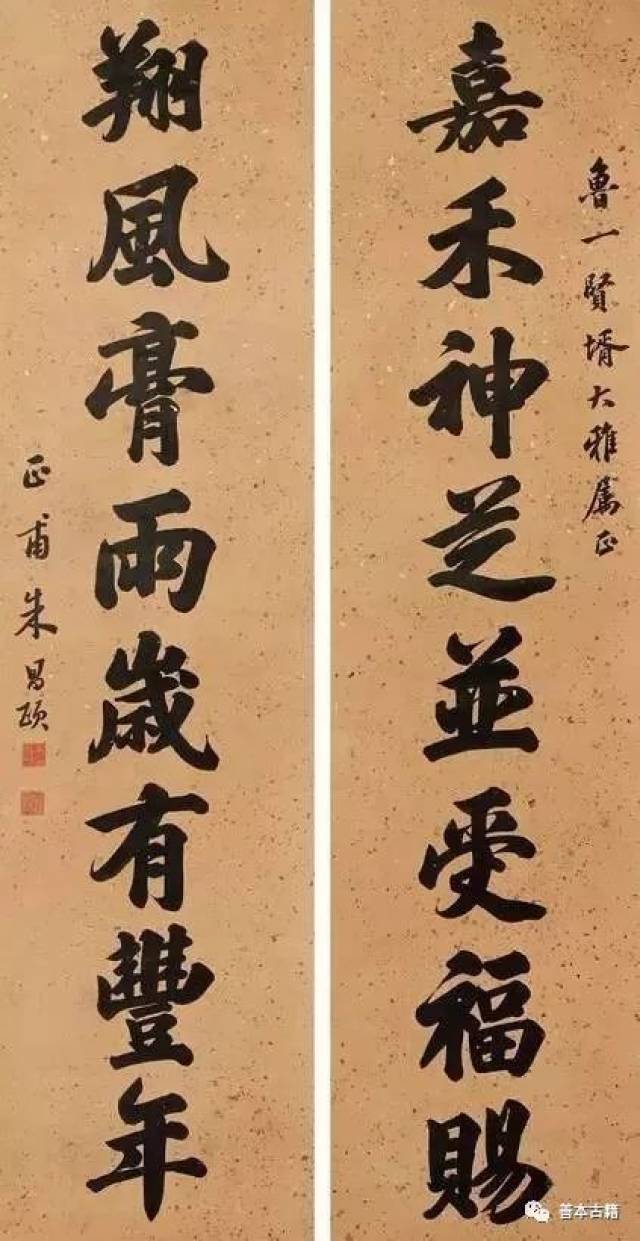 魯一賢壻大雅屬正
嘉禾神芝並受福賜
翔風膏雨歲有豐年
正甫朱昌頤
善本古籍